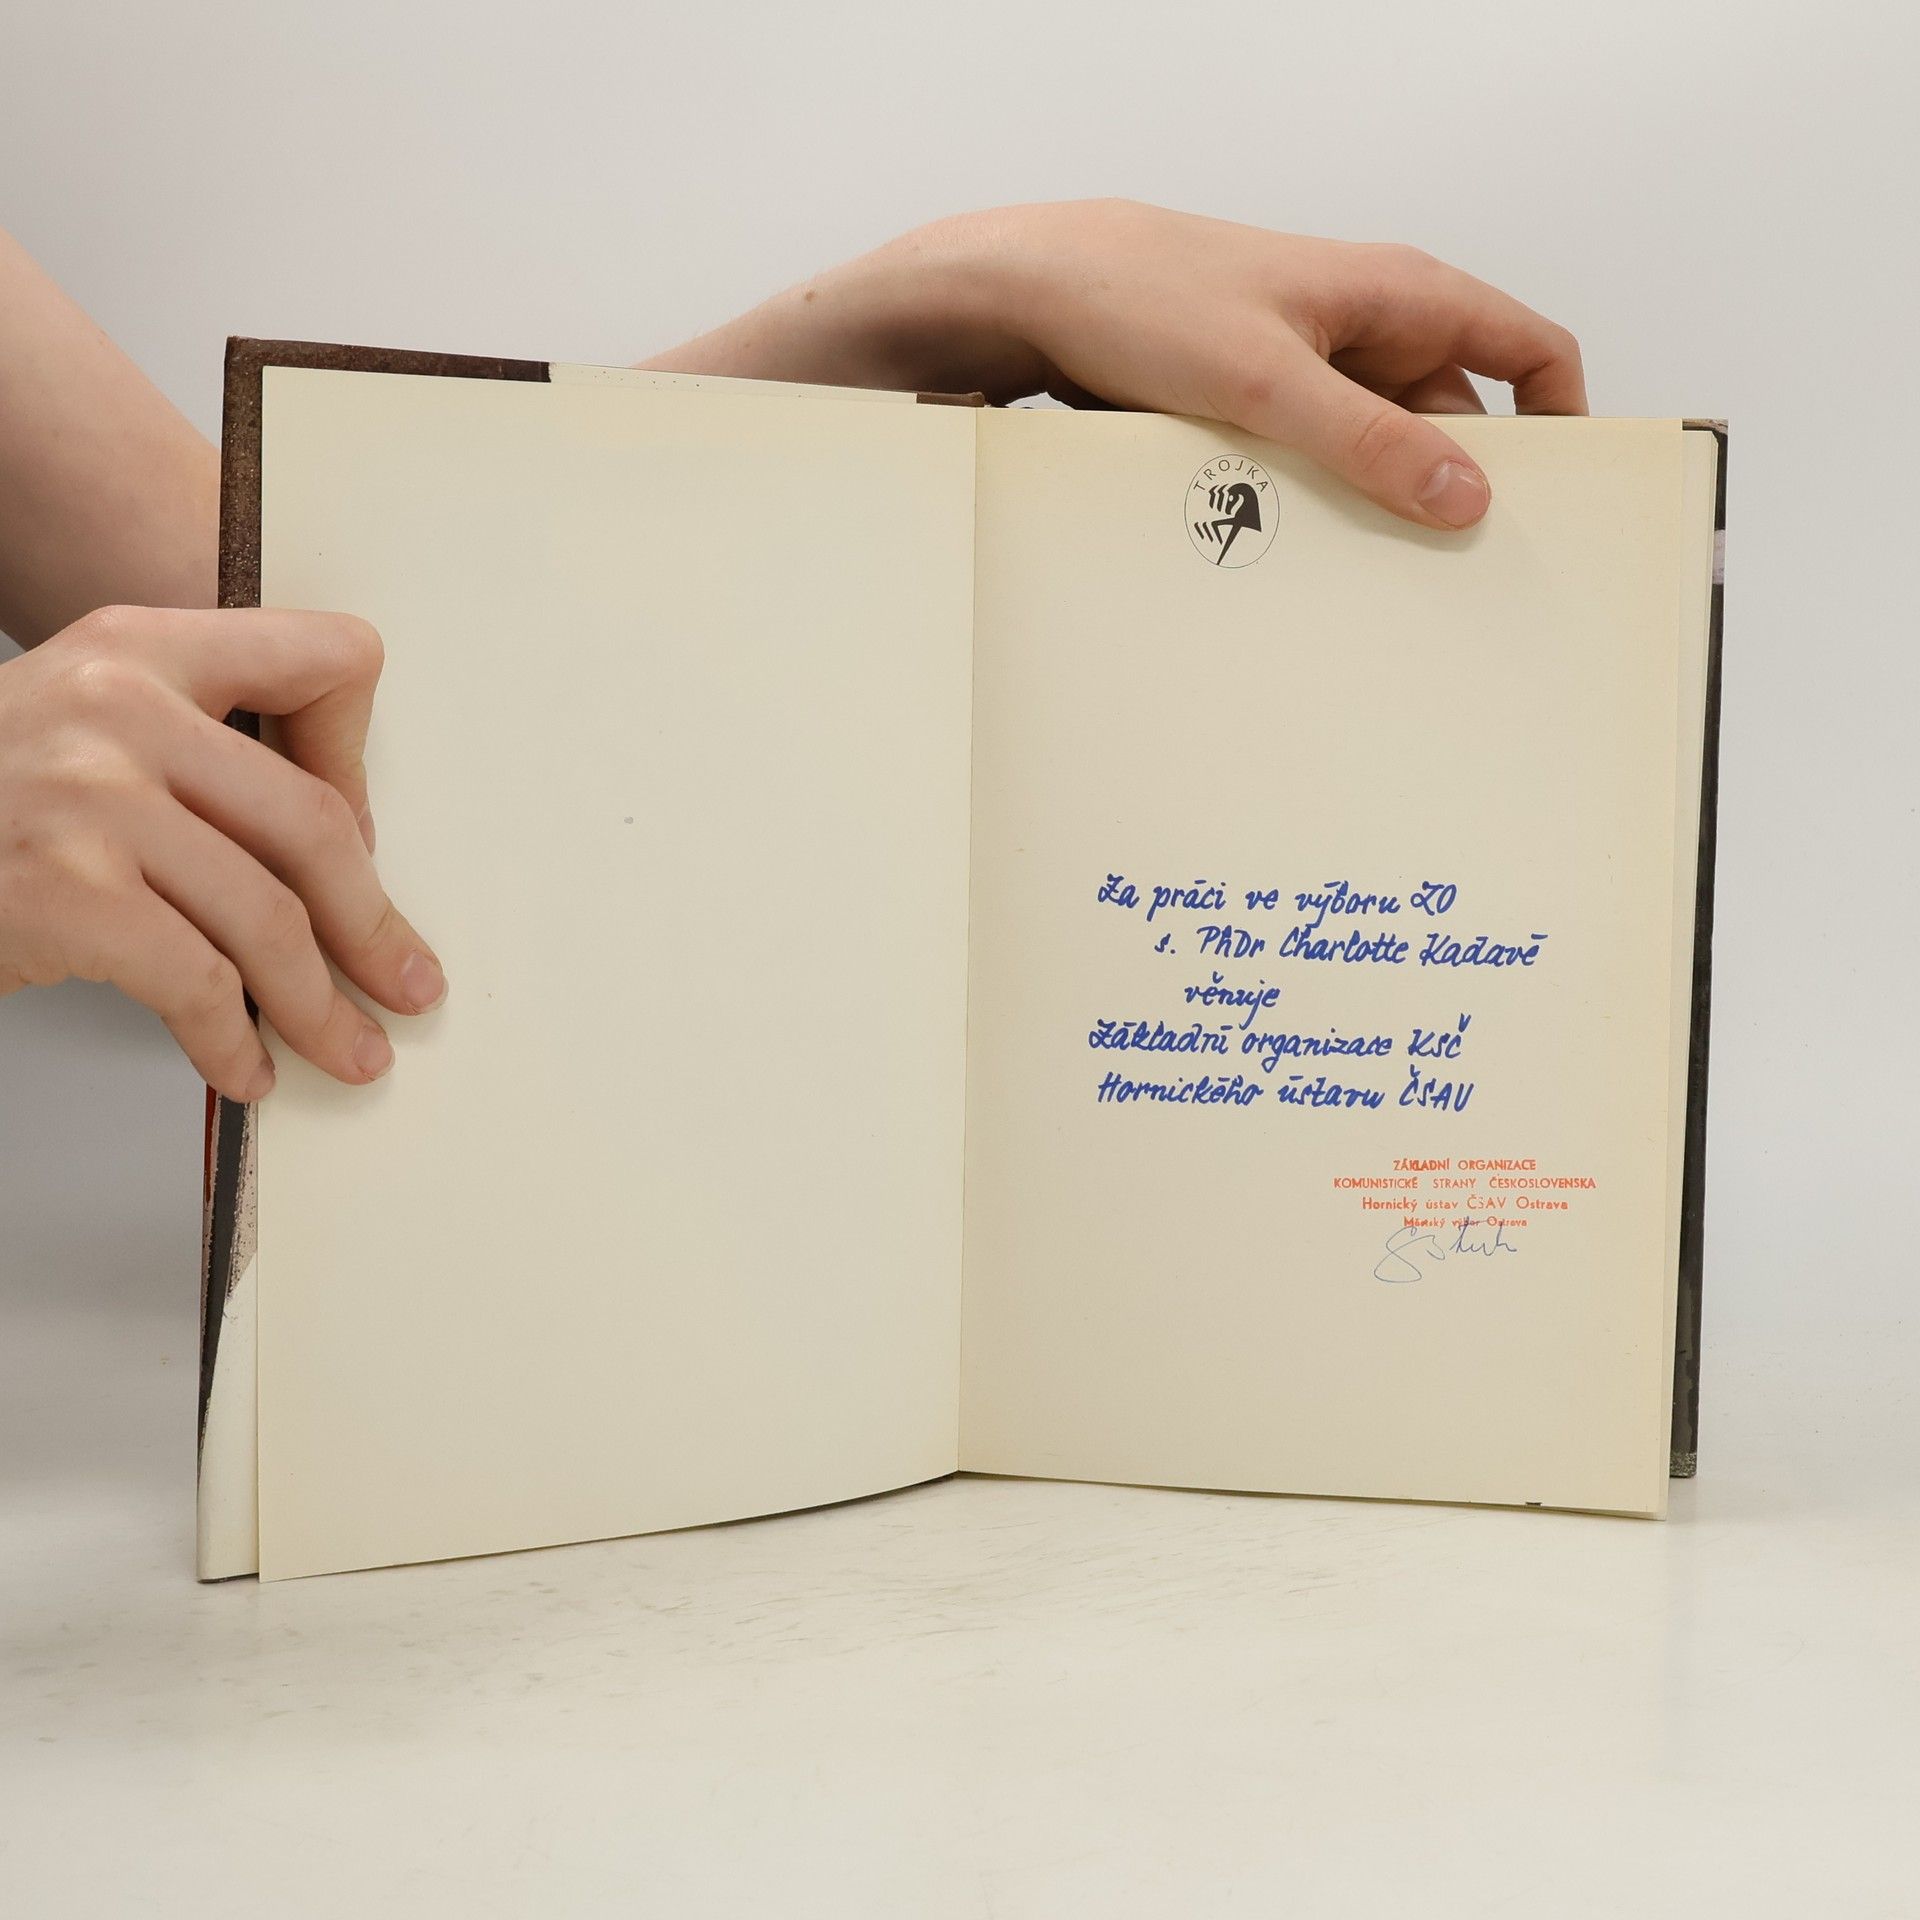 TROJKA
Za práci ve výboru ZO
s. PhDr Charlotte Kadavé
věnuje
Základní organizace KSČ
Hornického ústavu ČSAV
ZÁKLADNÍ ORGANIZACE
KOMUNISTICKÉ STRANY ČESKOSLOVENSKA
Hornický ústav ČSAV Ostrava
Městský výbor Ostrava